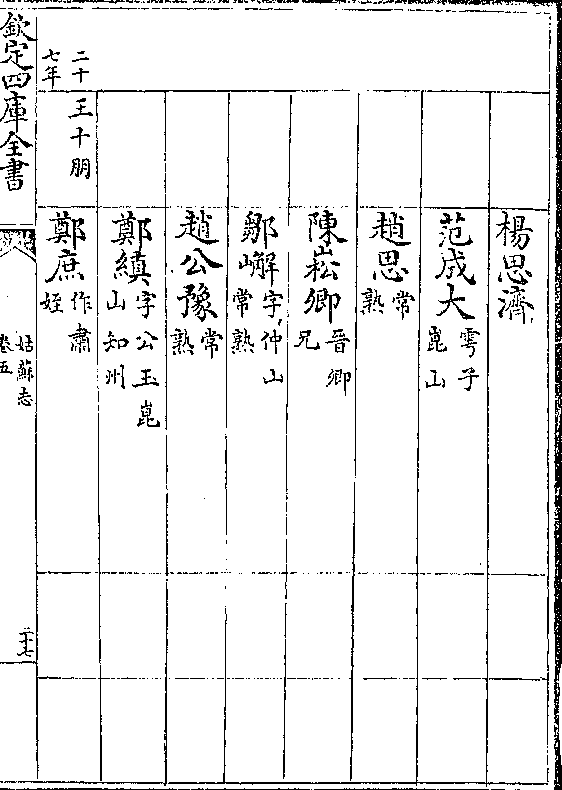 楊思濟
范成大 雩子崑山
趙思 常熟
陳崧卿 晉卿兄
鄒嶰 字仲山常熟
趙公豫 常熟
鄭縝 字公玉崑山知州
二十七年
王十朋
鄭庶 作肅姪
欽定四庫全書
姑蘇志
卷五
三十七